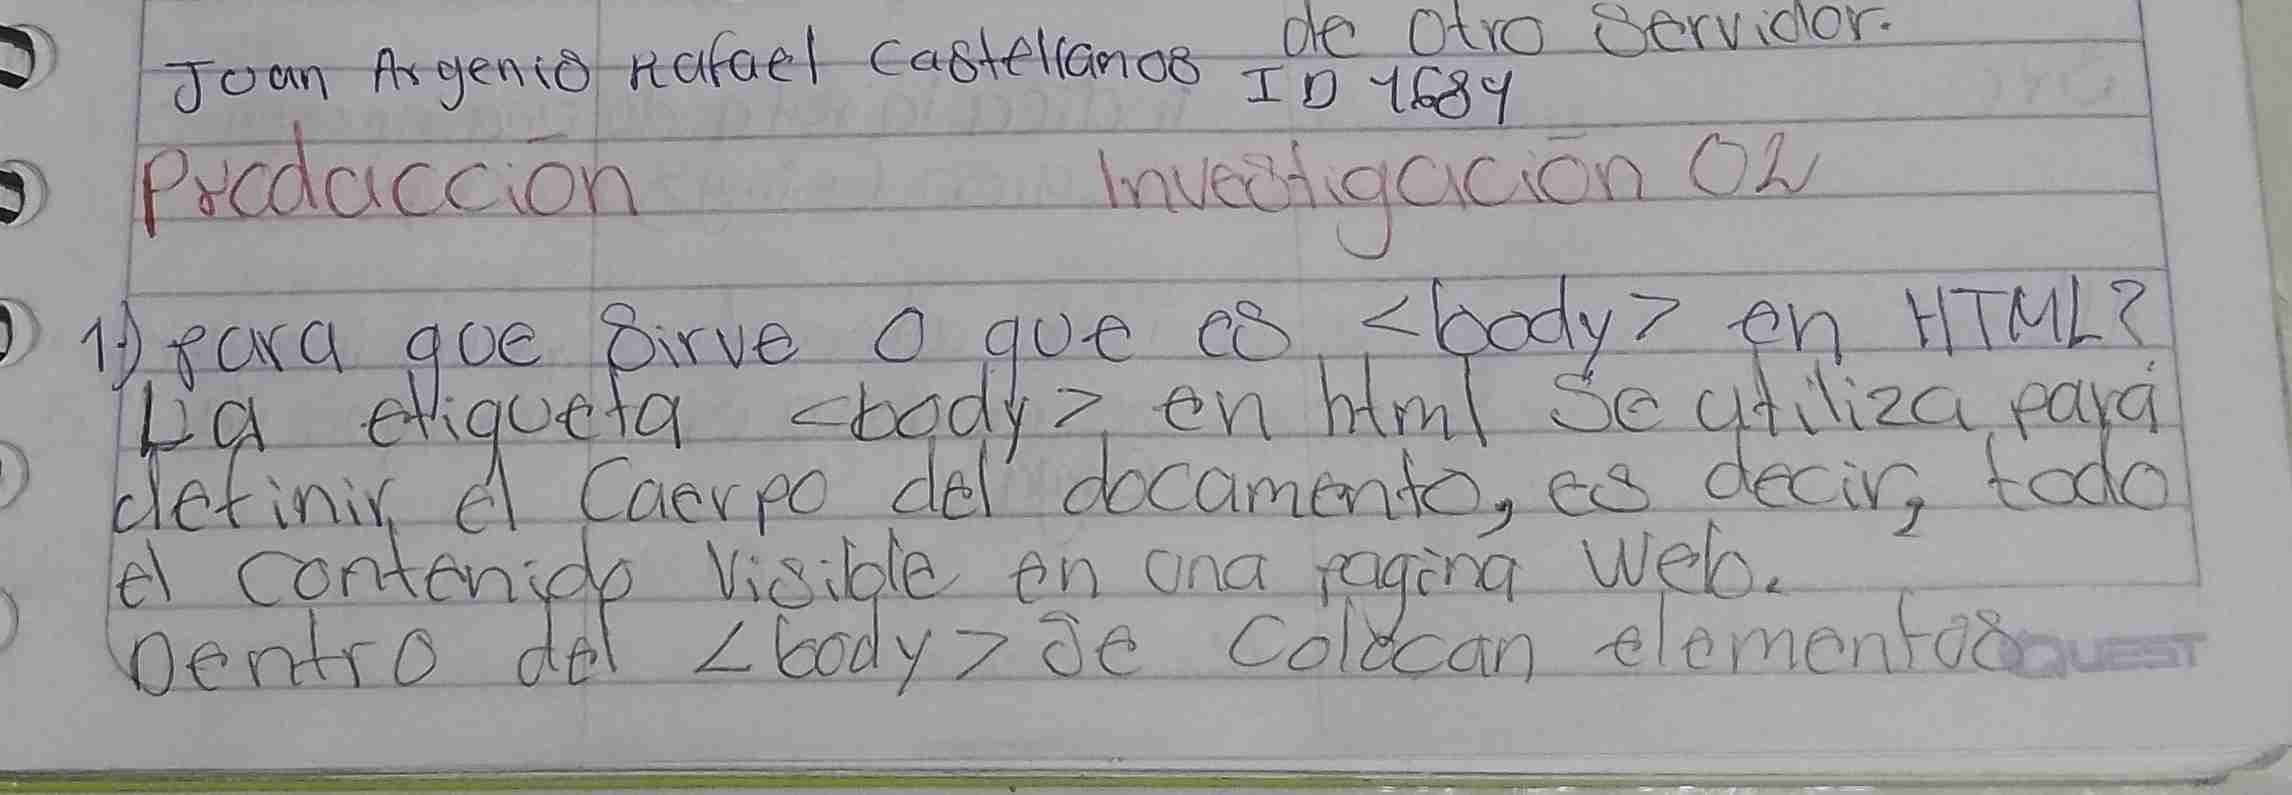 de otro servidor.
Juan Argenis Rafael Castellanos ID 1684
Producción Investigación 02
1) para que sirve o que es <body> en HTML?
La etiqueta <body> en html se utiliza para
definir el Cuerpo del documento, es decir, todo
el contenido visible en una pagina web.
Dentro del <body> se colocan elementos
QUEST